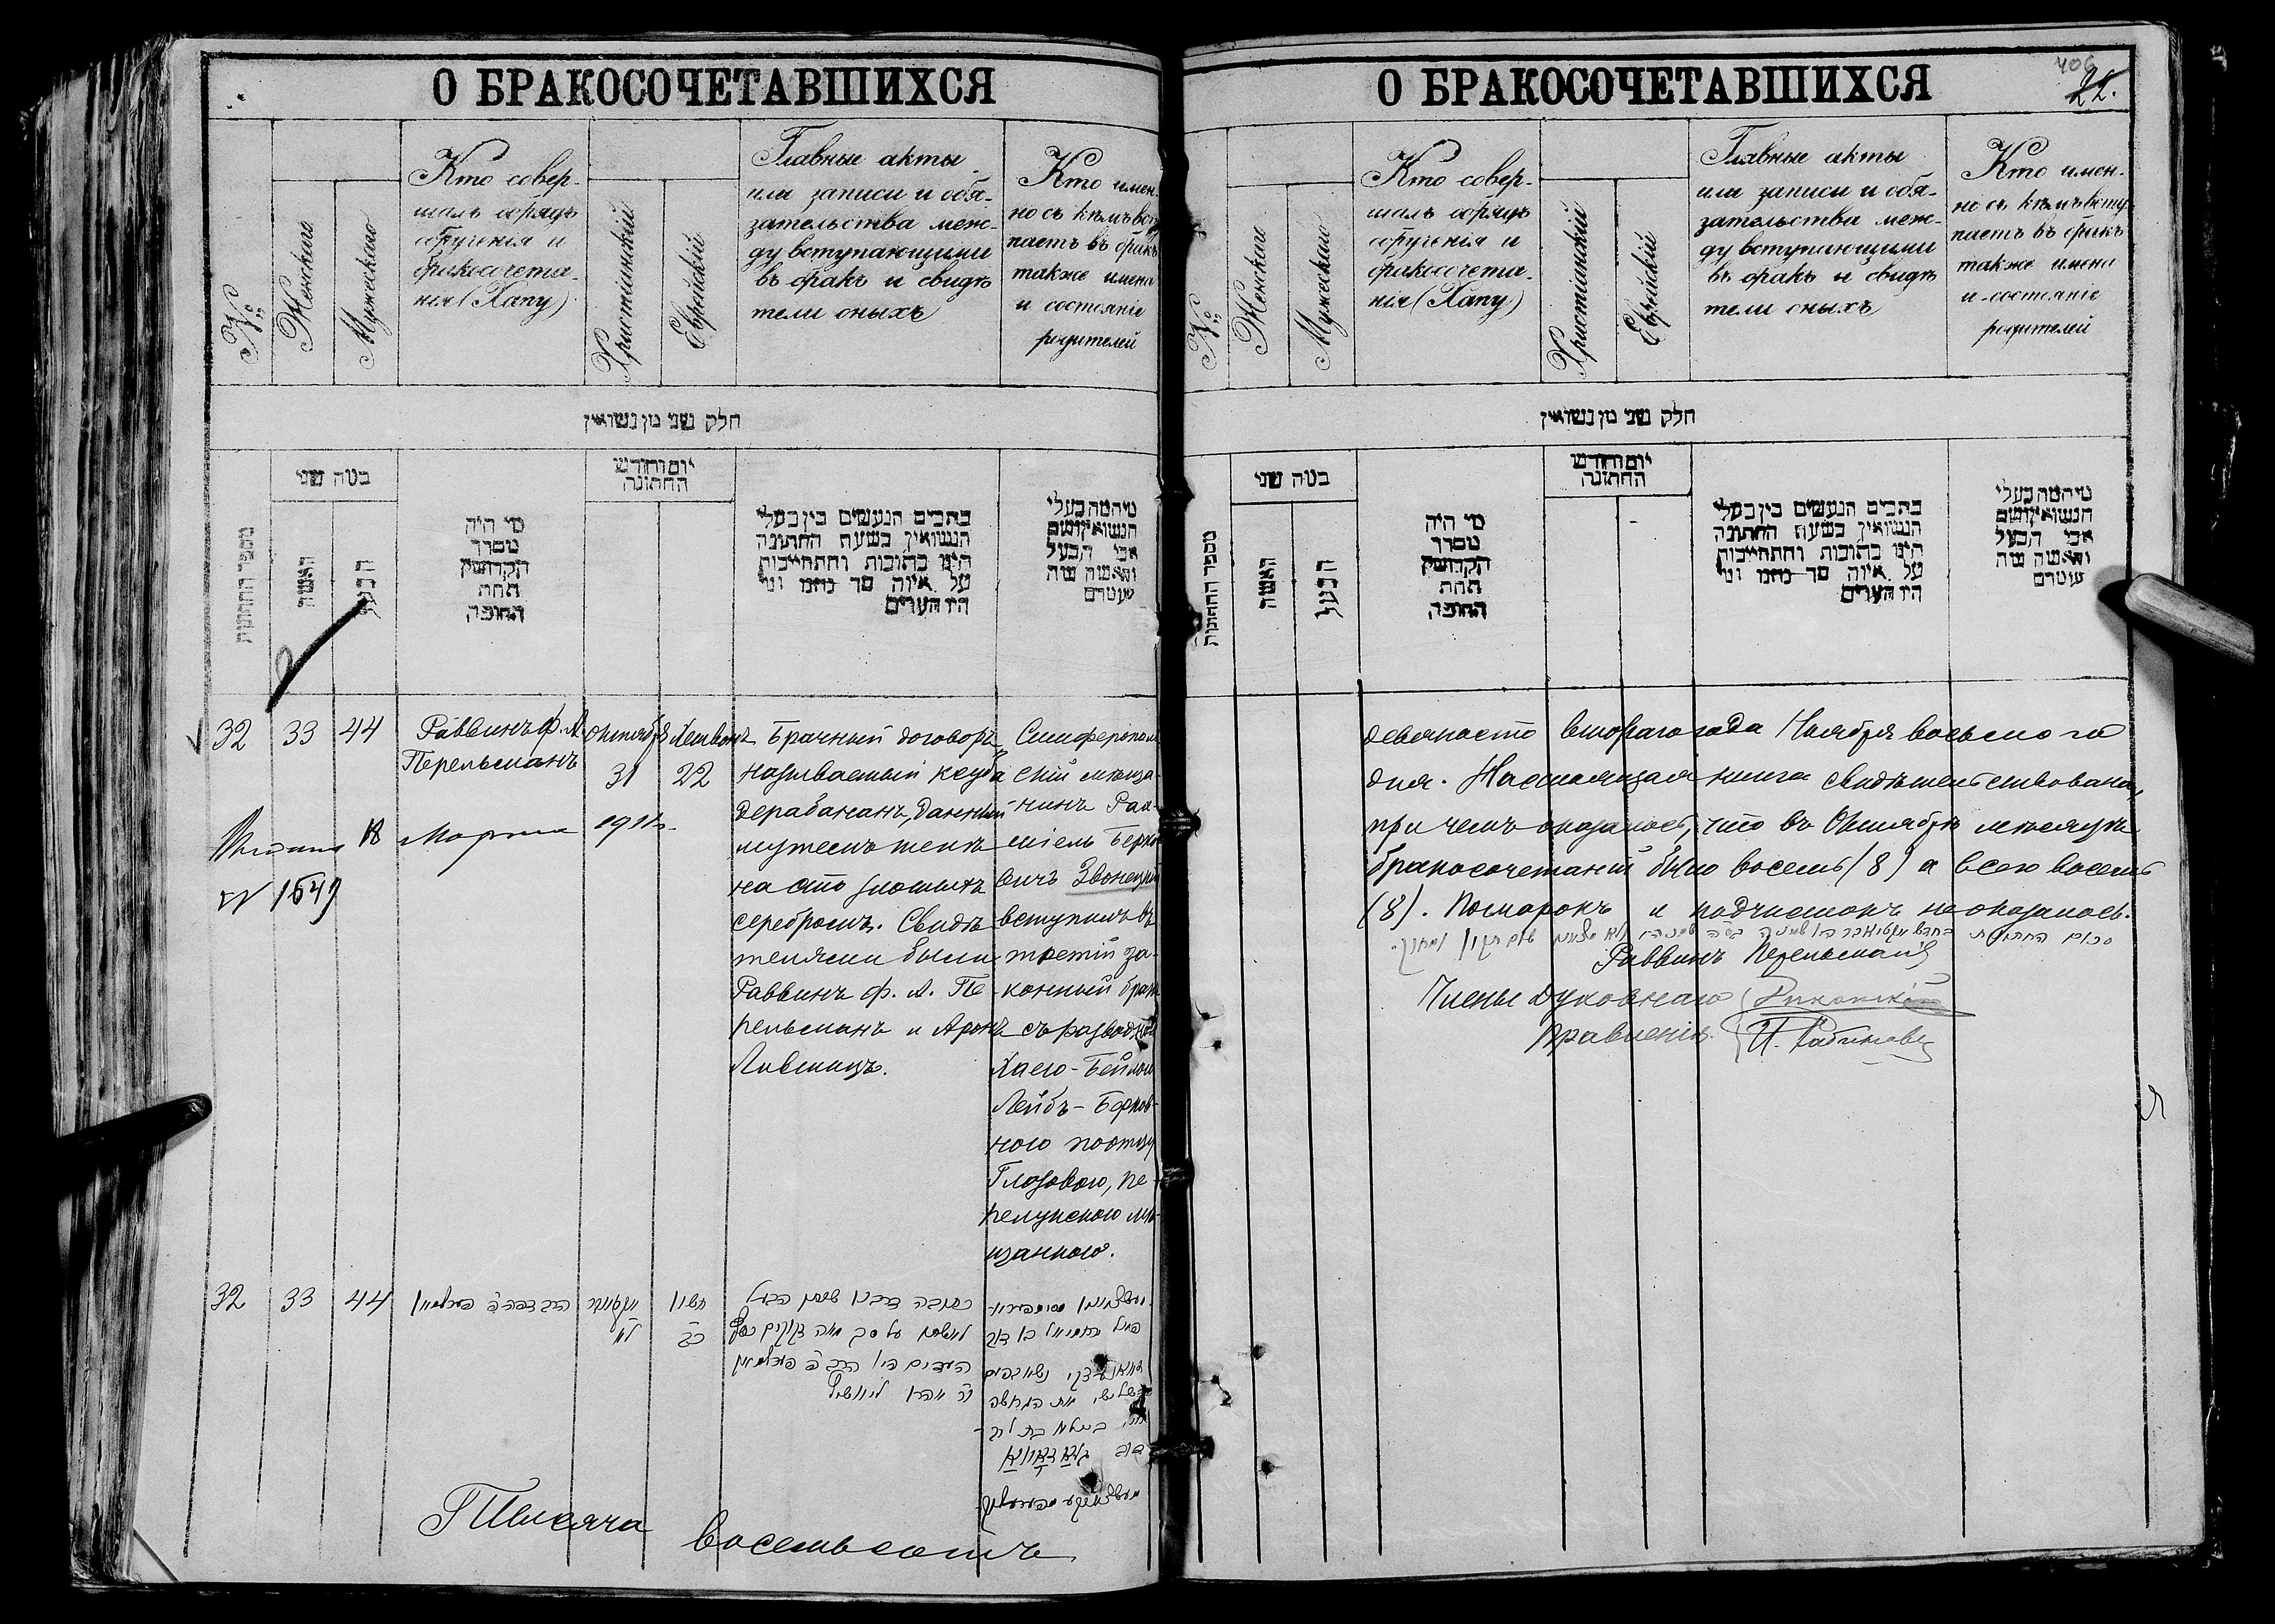 О БРАКОСОЧЕТАВШИХСЯ
№
Женскаго
Мужескаго
Кто совер-
шалъ обрядъ
обрученія и
бракосочета-
нія (Хапу)
Христіанскій
Еврейскій
Главные акты
или записи и обя-
зательства меж-
ду вступающими
въ бракъ и свидѣ
тели оныхъ
Кто имен
но съ кѣмъ всту
паетъ въ бракъ
также имена
и состояніе
родителей
חלק שני מן נשואין
מספר החתונות
בטה שני
האשה
הבעל
מי היה
מסדר
הקדושין
תחת
החופה
יום וחודש
החתונה
כתבים הנעשים בין בעלי
הנשואין בשעת החתונה
היינו כתובות והתחייבות
על איזה סך נתנו ומי
היו העדים
מיהמה בעלי
הנשואין ושם
אבי הבעל
והאשה מה
מעמדם
32 33 44
Раввинъ Ф. А.
Перельманъ
Октября
31
Хешвонъ
22
Брачный договоръ,
называемый кеуба
дерабанан, данный
мужемъ женѣ
на сто злотыхъ
серебромъ. Свидѣ
телями были
Раввинъ Ф. А. Пе-
рельманъ и Аронъ
Лившицъ.
Симферополь
скій мѣща-
нинъ Рах-
міель Берко
вичъ Звонецкій
вступилъ въ
третій за-
конный бракъ
съ разводной
Хаею-Бейлою
Лейбъ-Берков-
ною по отцу
Глазовою, Пе-
релукскою мѣ-
щанкою.
18 Марта 1911 г.
№ 1549
32 33 44
הרב פערלמאן
אקטאבר
לא
חשון
כב
כתובה דרבנן שנתן הבעל
לאשתו על סך מאה זקוקים כסף
העדים היו הרב פ פערלמאן
ור אהרן ליוושיץ
Тысяча восемьсотъ
О БРАКОСОЧЕТАВШИХСЯ
406
22.
№
Женскаго
Мужескаго
Кто совер-
шалъ обрядъ
обрученія и
бракосочета-
нія (Хапу)
Христіанскій
Еврейскій
Главные акты
или записи и обя-
зательства меж-
ду вступающими
въ бракъ и свидѣ
тели оныхъ
Кто имен-
но съ кѣмъ всту
паетъ въ бракъ
также имена
и состояніе
родителей
חלק שני מן נשואין
מספר החתונות
בטה שני
האשה
הבעל
מי היה
מסדר
הקדושין
תחת
החופה
יום וחודש
החתונה
כתבים הנעשים בין בעלי
הנשואין בשעת החתונה
היינו כתובות והתחייבות
על איזה סך נתנו ומי
היו העדים
מיהמה בעלי
הנשואין ושם
אבי הבעל
והאשה מה
מעמדם
девяносто втораго года Ноября восьмого
дня. Настоящая книга свидѣтельствована,
при чемъ оказалось, что въ Октябрѣ мѣсяцѣ
бракосочетаній было восемь (8) а всего восемь
(8). Помарокъ и подчистокъ не оказалось.
Раввинъ Перельманъ
Члены Духовнаго
Правленія.